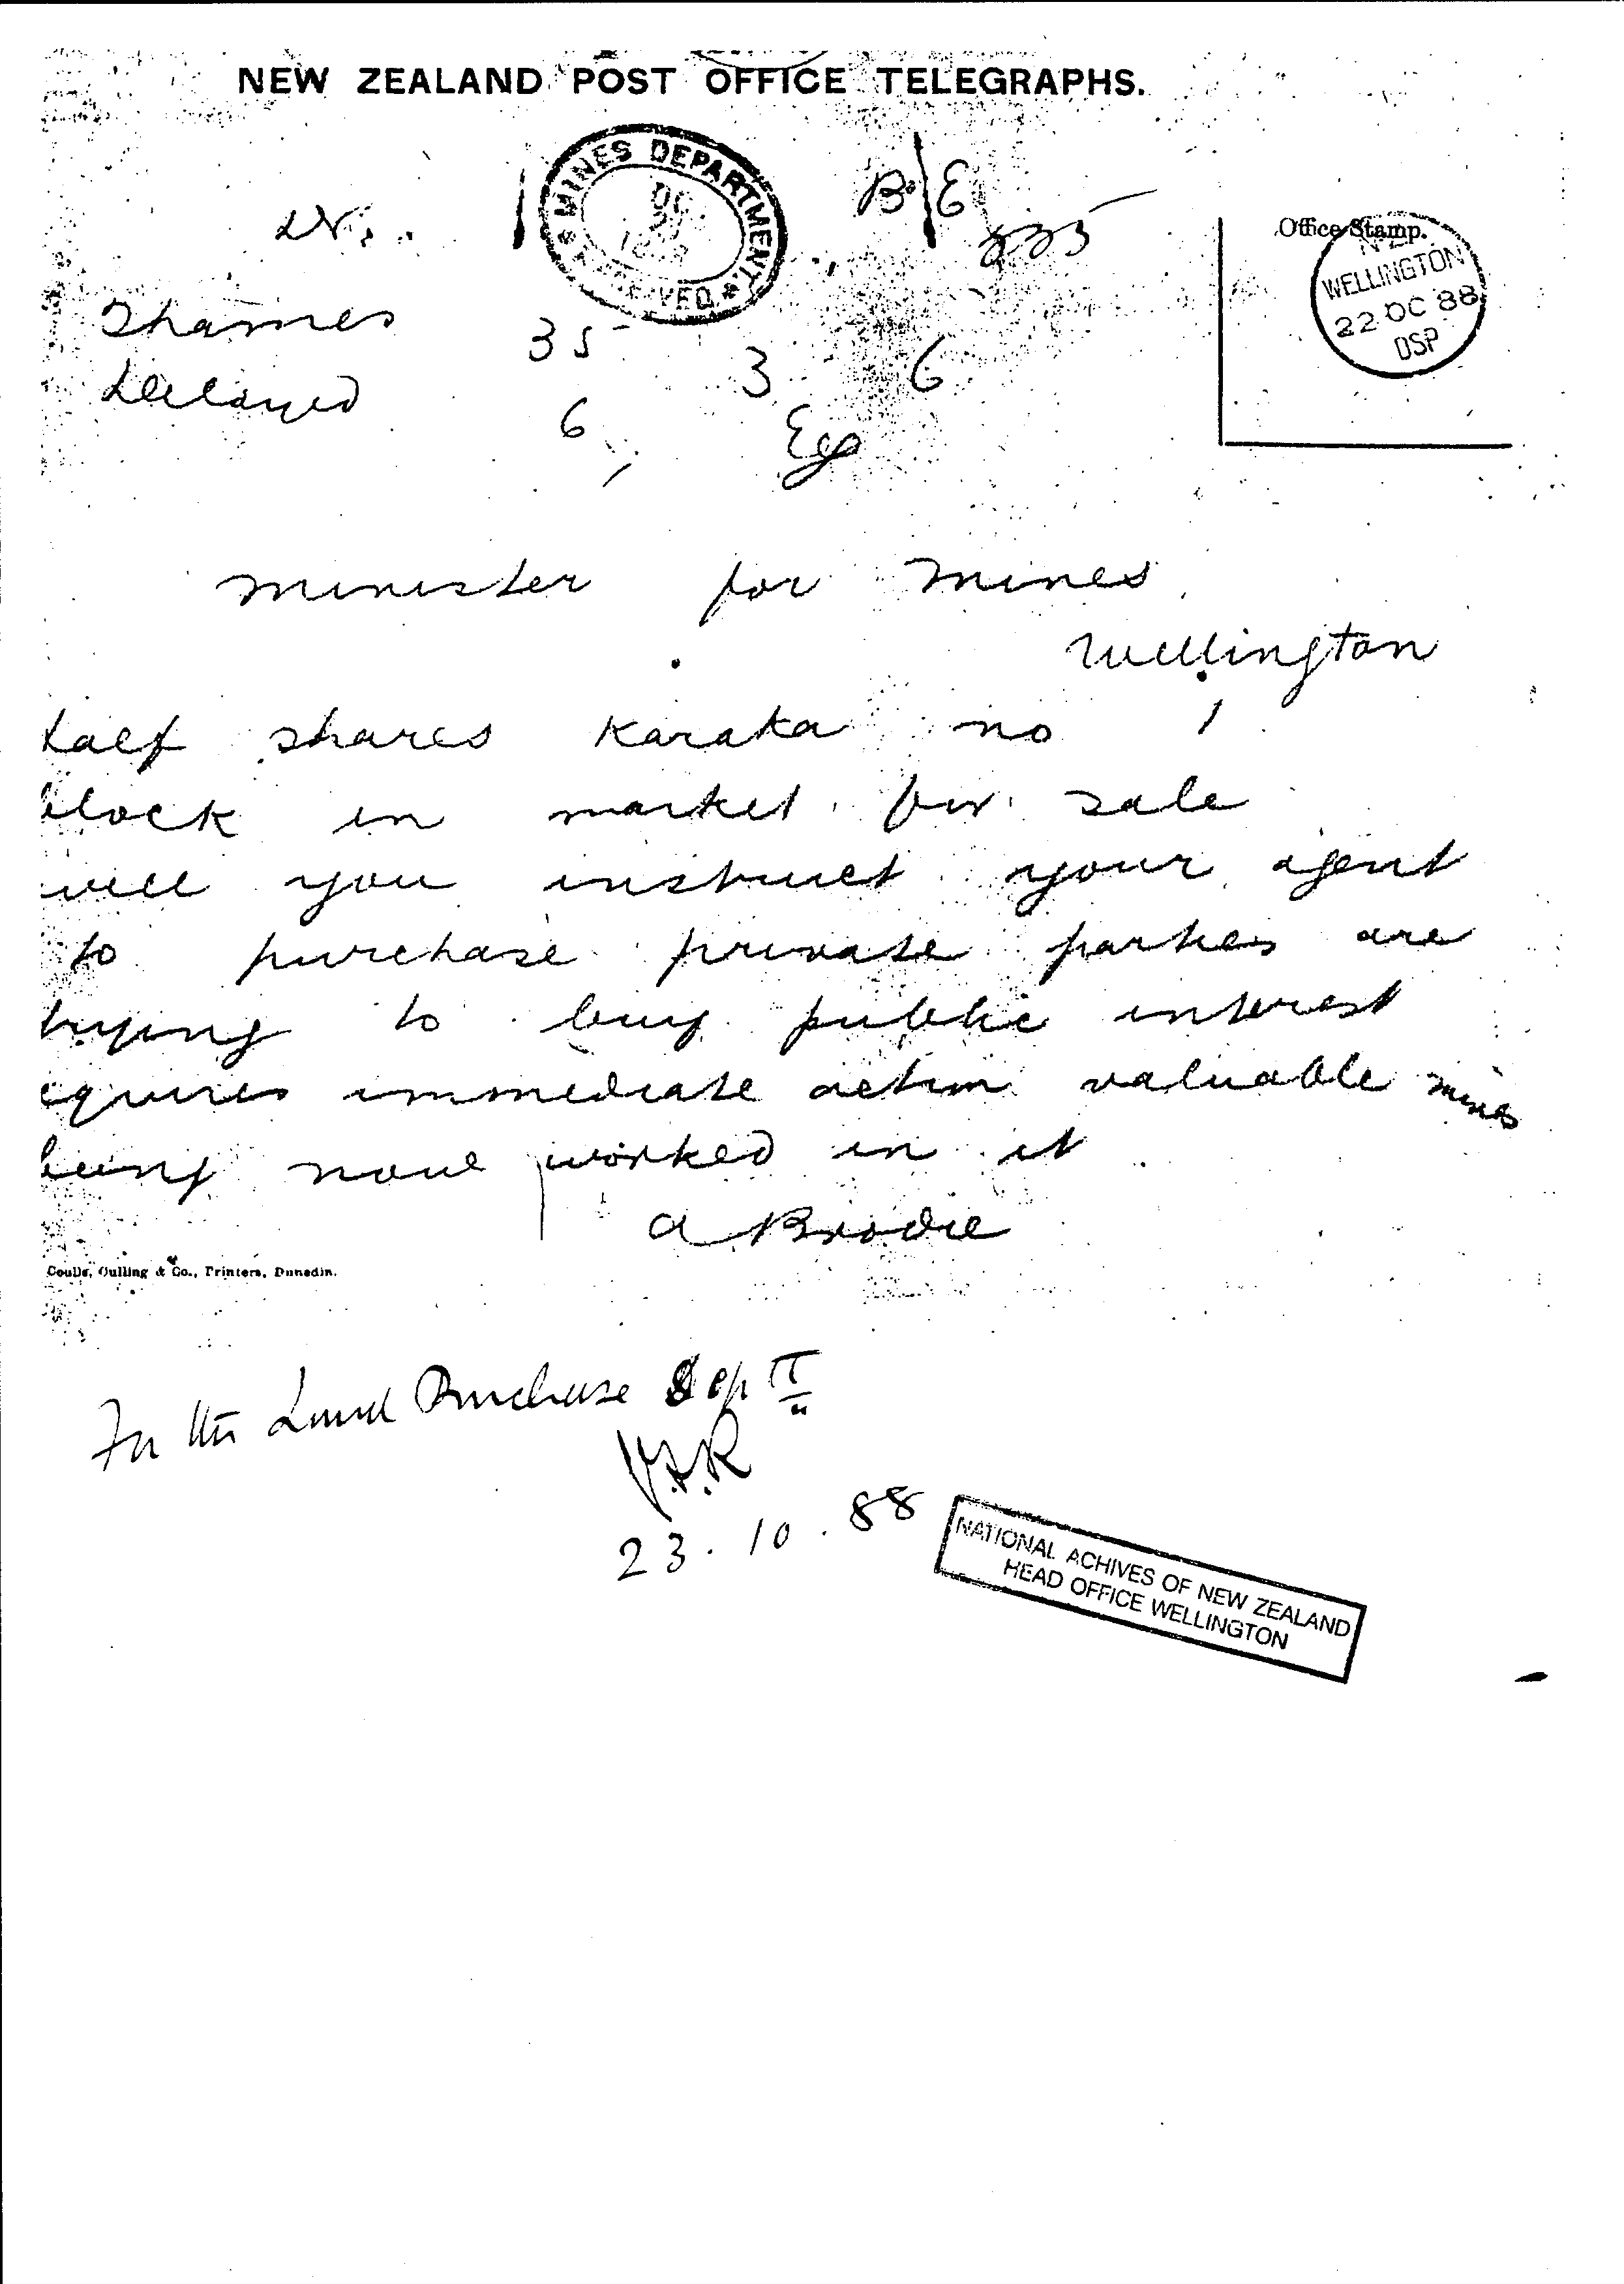 NEW ZEALAND POST OFFICE TELEGRAPHS.
MINES DEPARTMENT.
OC
RECEIVED
B E
Office Stamp.
NZ
WELLINGTON
22 OC 88
DSP
Thames
35
3 6
Delayed
6
Minister for Mines
Wellington
Half shares Karaka no 1
block in market for sale
will you instruct your agent
to purchase private parties are
trying to buy public interest
equires immediate action valuable mines
being now worked in it
A Brodie
Coulls, Culling & Co., Printers, Dunedin.
For the Land Purchase Dept
23.10.88
NATIONAL ACHIVES OF NEW ZEALAND
HEAD OFFICE WELLINGTON